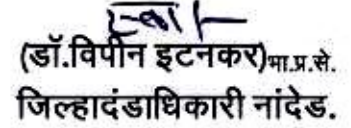 स्वा/-
(डॉ.विपीन इटनकर)भा.प्र.से.
जिल्हादंडाधिकारी नांदेड.